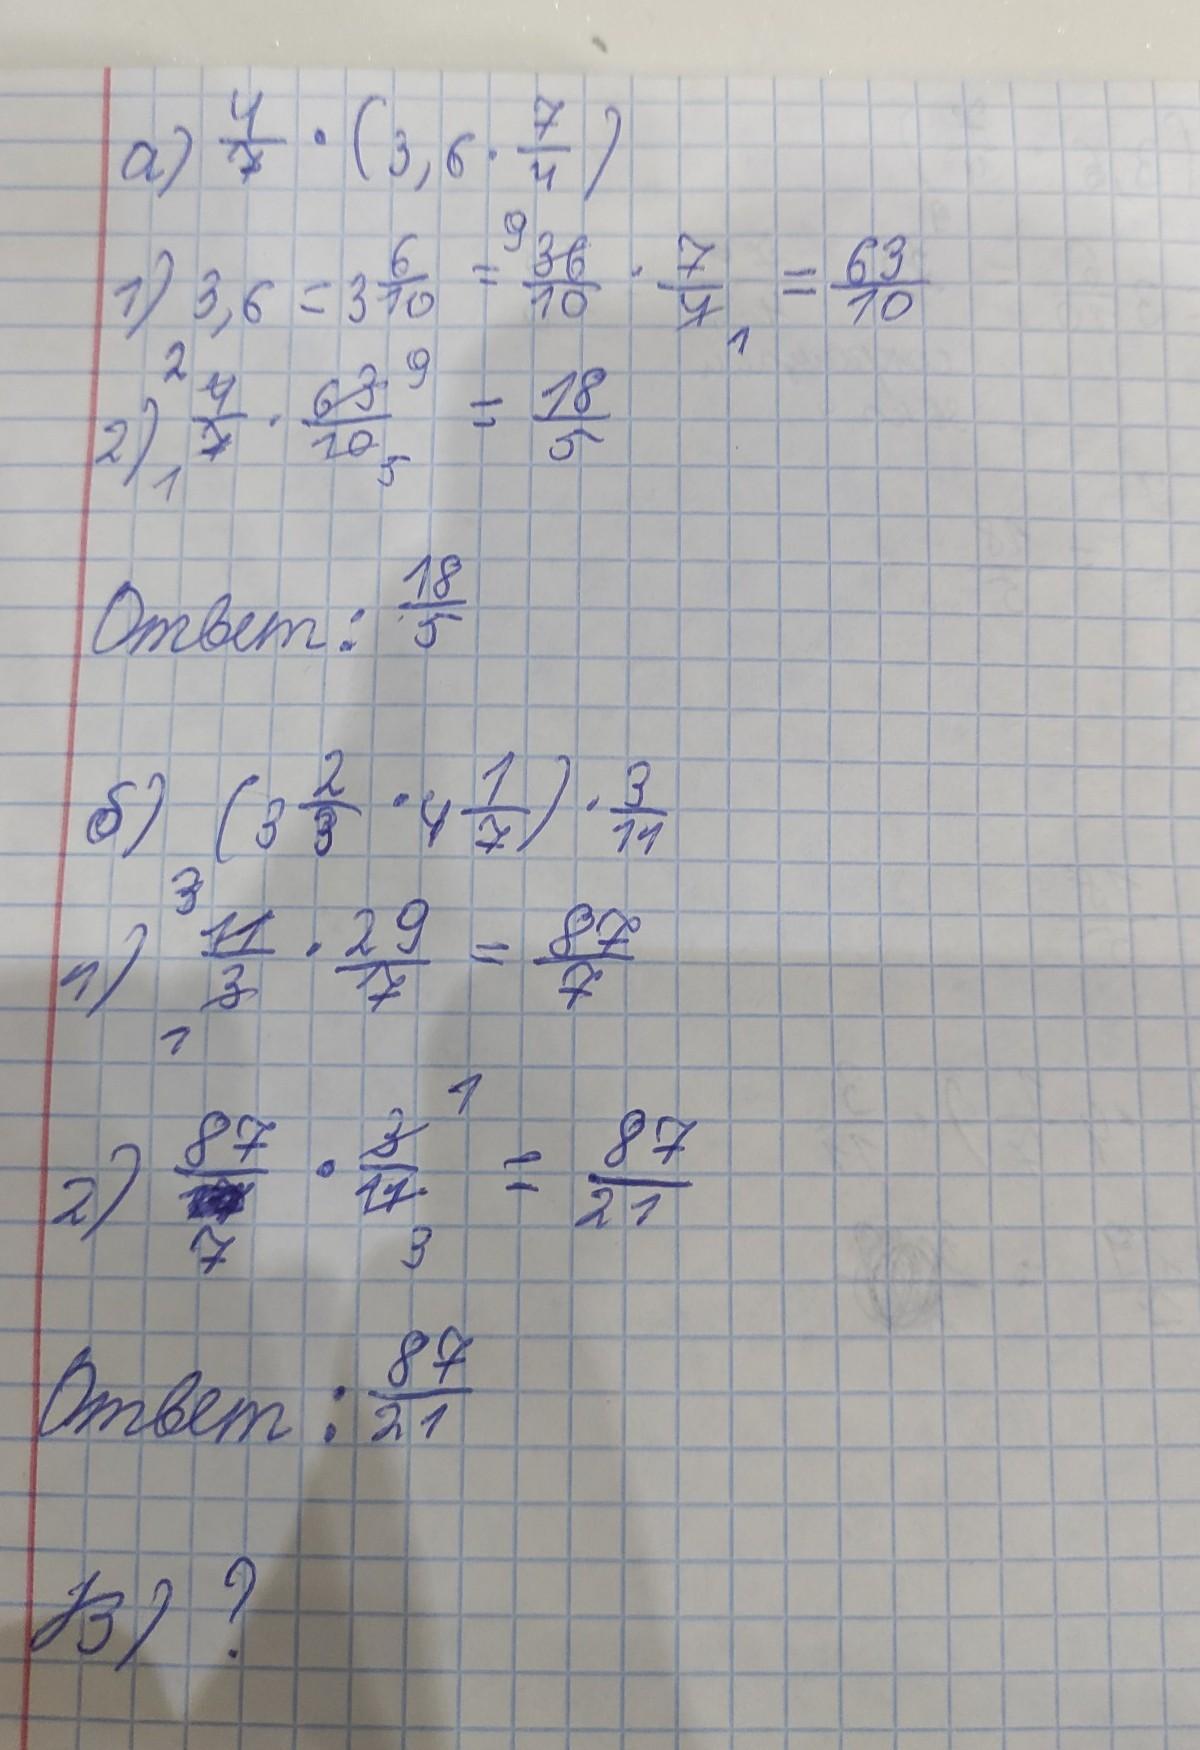 а) 4/7 · (3,6 · 7/4)
1) 3,6 = 3 6/10 = 9 36/10 · 7/4 1 = 63/10
2) 2 4/7 1 · 63/10 9 5 = 18/5
Ответ: 18/5
б) (3 2/3 · 4 1/7) · 3/11
1) 3 11/3 1 · 29/7 = 87/7
2) 87/7 · 3/11 1 3 = 87/21
Ответ: 87/21
в) ?